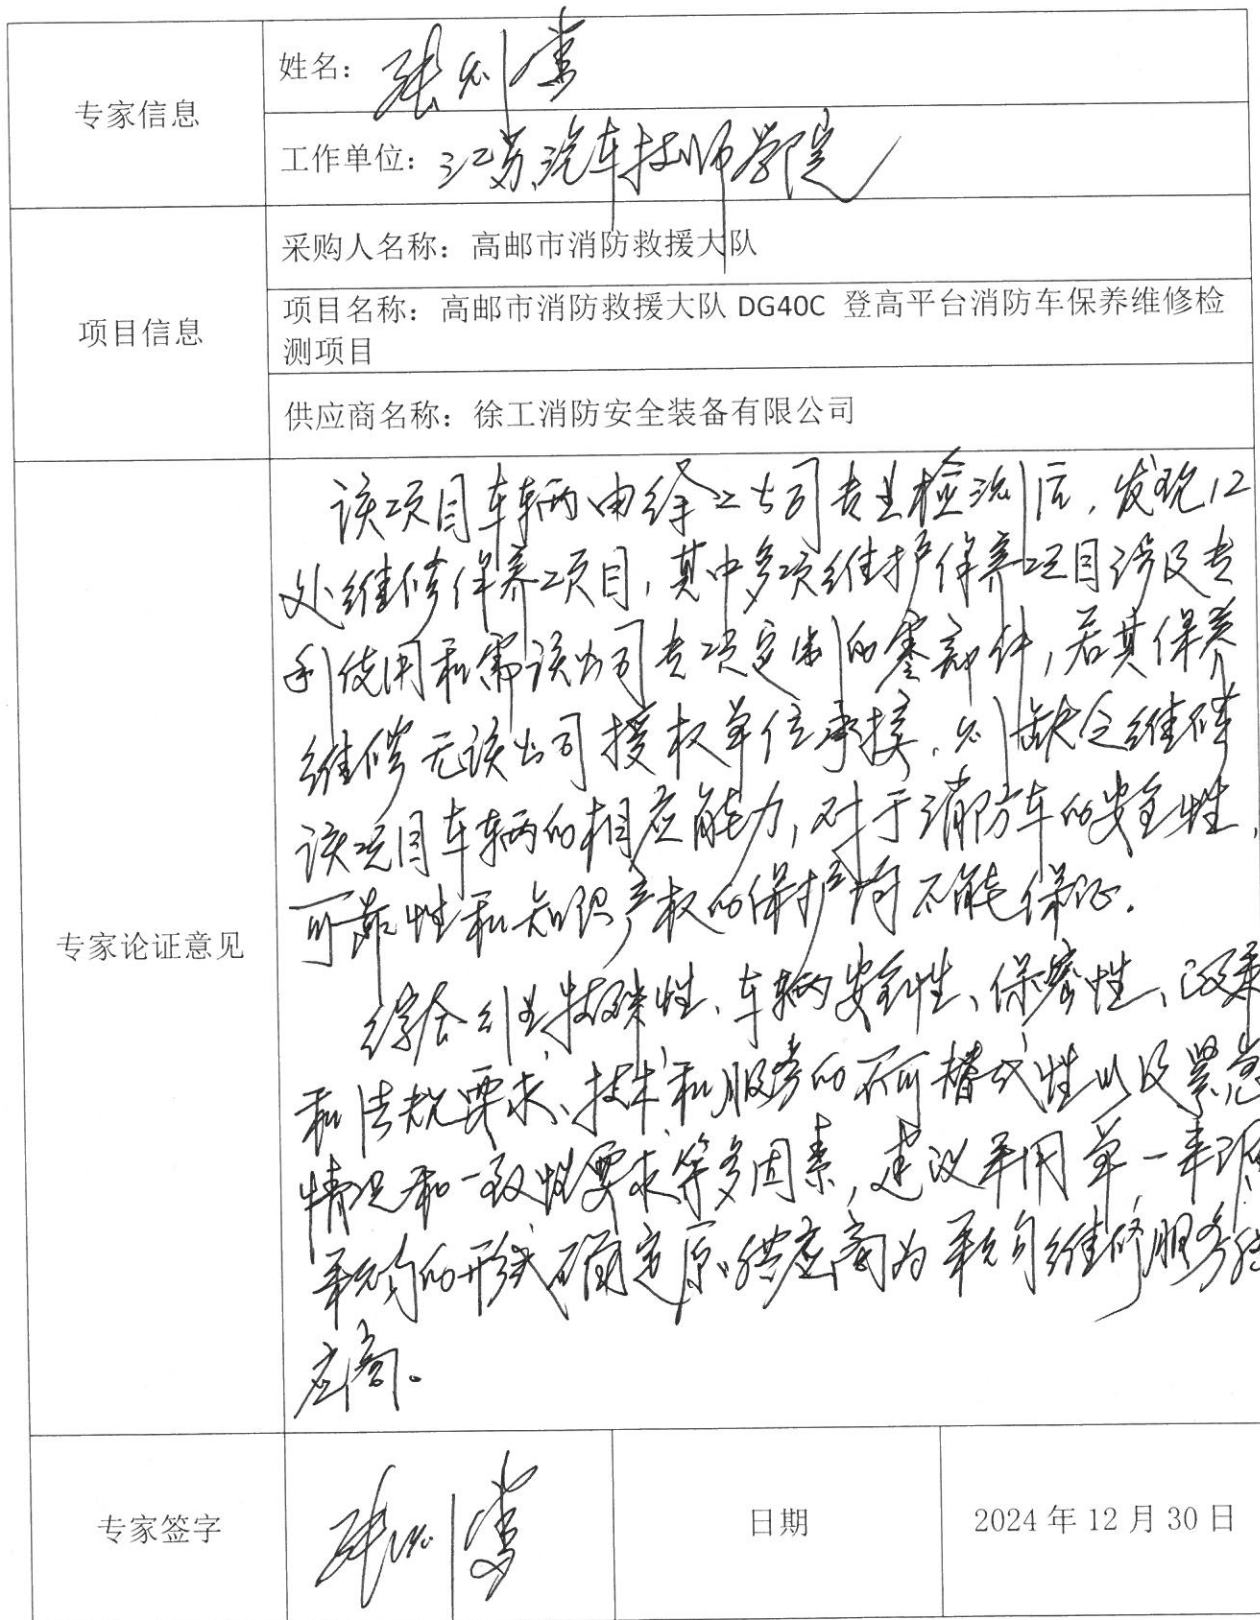 专家信息
姓名：张则
工作单位：江苏汽车技师学院
项目信息
采购人名称：高邮市消防救援大队
项目名称：高邮市消防救援大队 DG40C 登高平台消防车保养维修检
测项目
供应商名称：徐工消防安全装备有限公司
专家论证意见
该项目车辆由徐工公司专业检测后，发现12
处维修保养项目，其中多项维护保养项目涉及专
利使用和需该公司专项定制的零部件，若其保养
维修无该公司授权单位承接，则缺乏维修
该项目车辆的相应能力，对于消防车的安全性、
可靠性和知识产权的保护均不能保证。
综合行业特殊性、车辆安全性、保密性、政策
和法规要求、技术和服务的不可替代性以及紧急
情况和一致性要求等多因素，建议采用单一来源
采购的形式确定原供应商为采购维修服务供
应商。
专家签字
张则
日期
2024 年 12 月 30 日